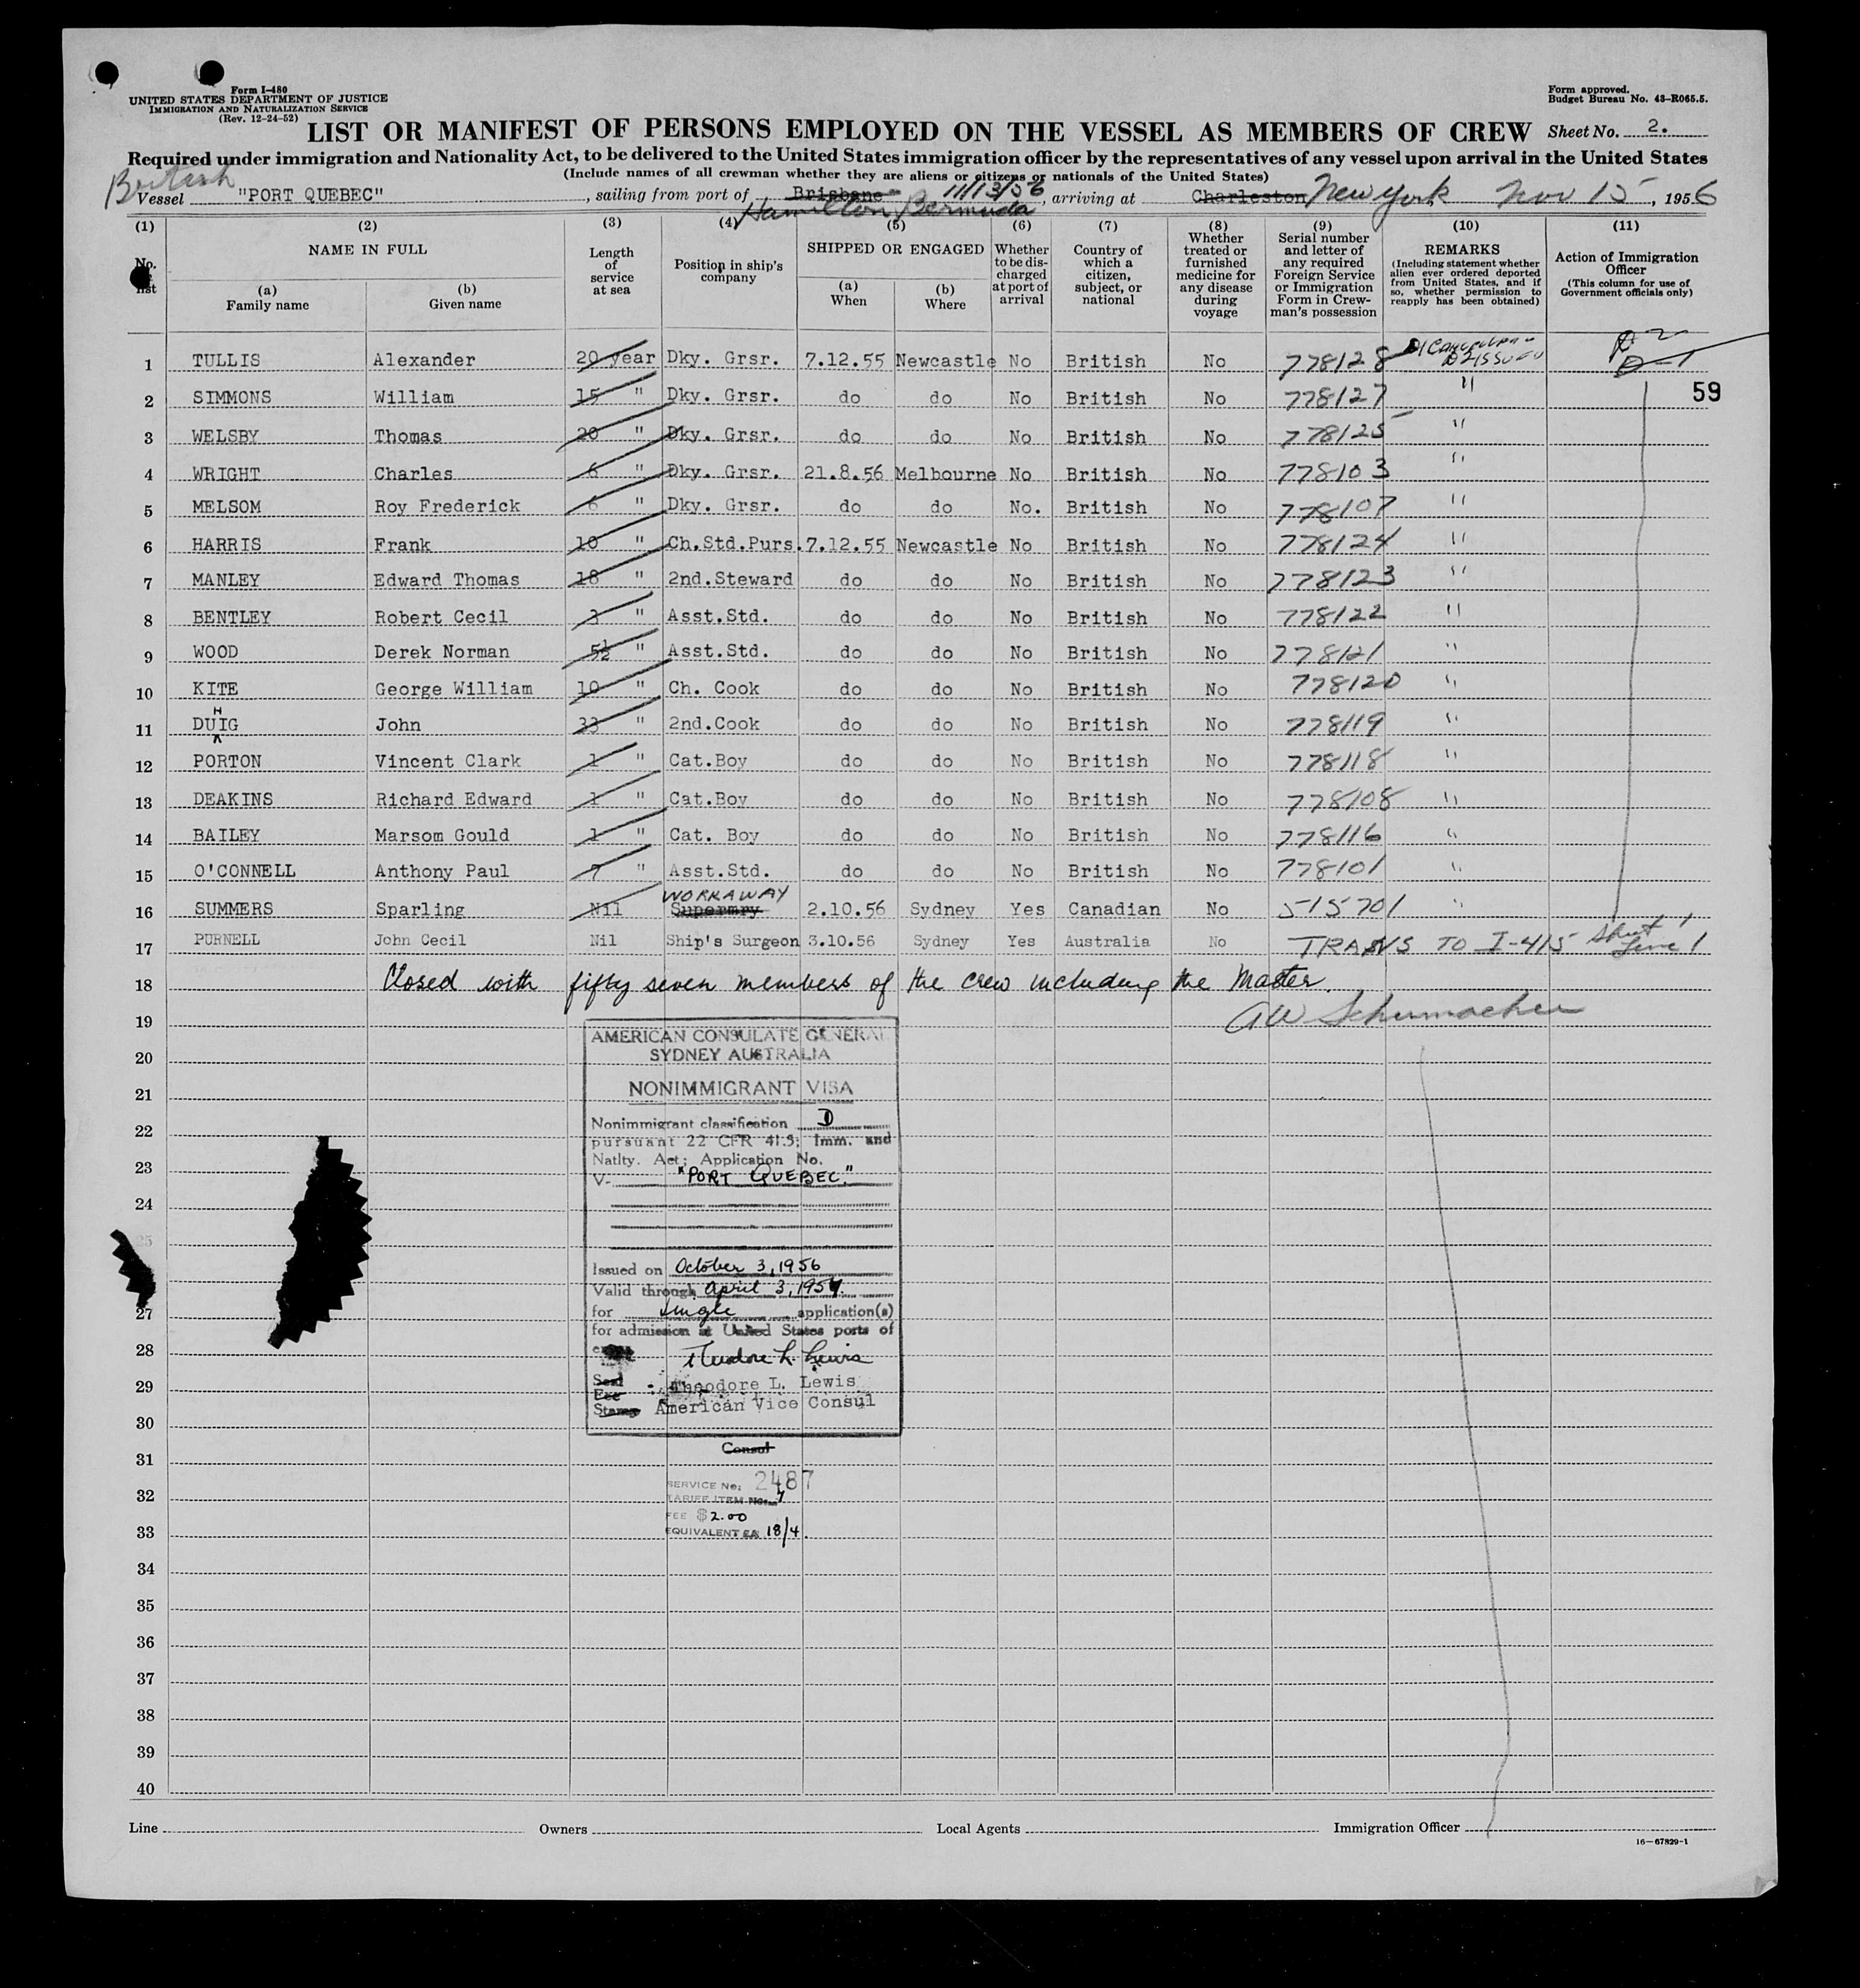 Form I-480
UNITED STATES DEPARTMENT OF JUSTICE
IMMIGRATION AND NATURALIZATION SERVICE
(Rev. 12-24-52)
Form approved.
Budget Bureau No. 43-R065.5.
LIST OR MANIFEST OF PERSONS EMPLOYED ON THE VESSEL AS MEMBERS OF CREW Sheet No. 2.
Required under immigration and Nationality Act, to be delivered to the United States immigration officer by the representatives of any vessel upon arrival in the United States
(Include names of all crewman whether they are aliens or citizens or nationals of the United States)
British
Vessel "PORT QUEBEC", sailing from port of Brisbane 11/13/56, arriving at Charleston New York Nov 15, 1956
Hamilton Bermuda
(1) (2) (3) (4) (5) (6) (7) (8) (9) (10) (11)
No. list
NAME IN FULL
(a) Family name
(b) Given name
Length of service at sea
Position in ship's company
SHIPPED OR ENGAGED
(a) When
(b) Where
Whether to be discharged at port of arrival
Country of which a citizen, subject, or national
Whether treated or furnished medicine for any disease during voyage
Serial number and letter of any required Foreign Service or Immigration Form in Crewman's possession
REMARKS
(Including statement whether alien ever ordered deported from United States, and if so, whether permission to reapply has been obtained)
Action of Immigration Officer
(This column for use of Government officials only)
1 TULLIS Alexander 20 year Dky. Grsr. 7.12.55 Newcastle No British No 778128 D-1
2 SIMMONS William 15 " Dky. Grsr. do do No British No 778127 " 59
3 WELSBY Thomas 20 " Dky. Grsr. do do No British No 778125 "
4 WRIGHT Charles 6 " Dky. Grsr. 21.8.56 Melbourne No British No 778103 "
5 MELSOM Roy Frederick 6 " Dky. Grsr. do do No. British No 778107 "
6 HARRIS Frank 10 " Ch.Std.Purs. 7.12.55 Newcastle No British No 778124 "
7 MANLEY Edward Thomas 18 " 2nd.Steward do do No British No 778123 "
8 BENTLEY Robert Cecil 3 " Asst.Std. do do No British No 778122 "
9 WOOD Derek Norman 5½ " Asst.Std. do do No British No 778121 "
10 KITE George William 10 " Ch. Cook do do No British No 778120 "
H
11 DUIG John 33 " 2nd.Cook do do No British No 778119 "
12 PORTON Vincent Clark 1 " Cat.Boy do do No British No 778118 "
13 DEAKINS Richard Edward 1 " Cat.Boy do do No British No 778108 "
14 BAILEY Marsom Gould 1 " Cat. Boy do do No British No 778116 "
15 O'CONNELL Anthony Paul 7 " Asst.Std. do do No British No 778101 "
WORKAWAY
16 SUMMERS Sparling Nil Supermry 2.10.56 Sydney Yes Canadian No 515701 "
17 PURNELL John Cecil Nil Ship's Surgeon 3.10.56 Sydney Yes Australia No TRANS TO I-415 Sheet 1 Line 1
18 Closed with fifty seven members of the crew including the Master.
19 AW Schumacher
20
21
22
23
24
25
27
28
29
30
31
32
33
34
35
36
37
38
39
40
AMERICAN CONSULATE GENERAL
SYDNEY AUSTRALIA
NONIMMIGRANT VISA
Nonimmigrant classification D
pursuant 22 CFR 41.5; Imm. and
Natlty. Act; Application No.
V- "PORT QUEBEC."
Issued on October 3, 1956
Valid through April 3, 1957.
for single application(s)
for admission at United States ports of
Theodore L. Lewis
Seal Theodore L. Lewis
Fee
Stamp American Vice Consul
Consul
SERVICE No: 2487
TARIFF ITEM No. 7
FEE $2.00
EQUIVALENT £A 18/4
Line Owners Local Agents Immigration Officer
16—67829-1